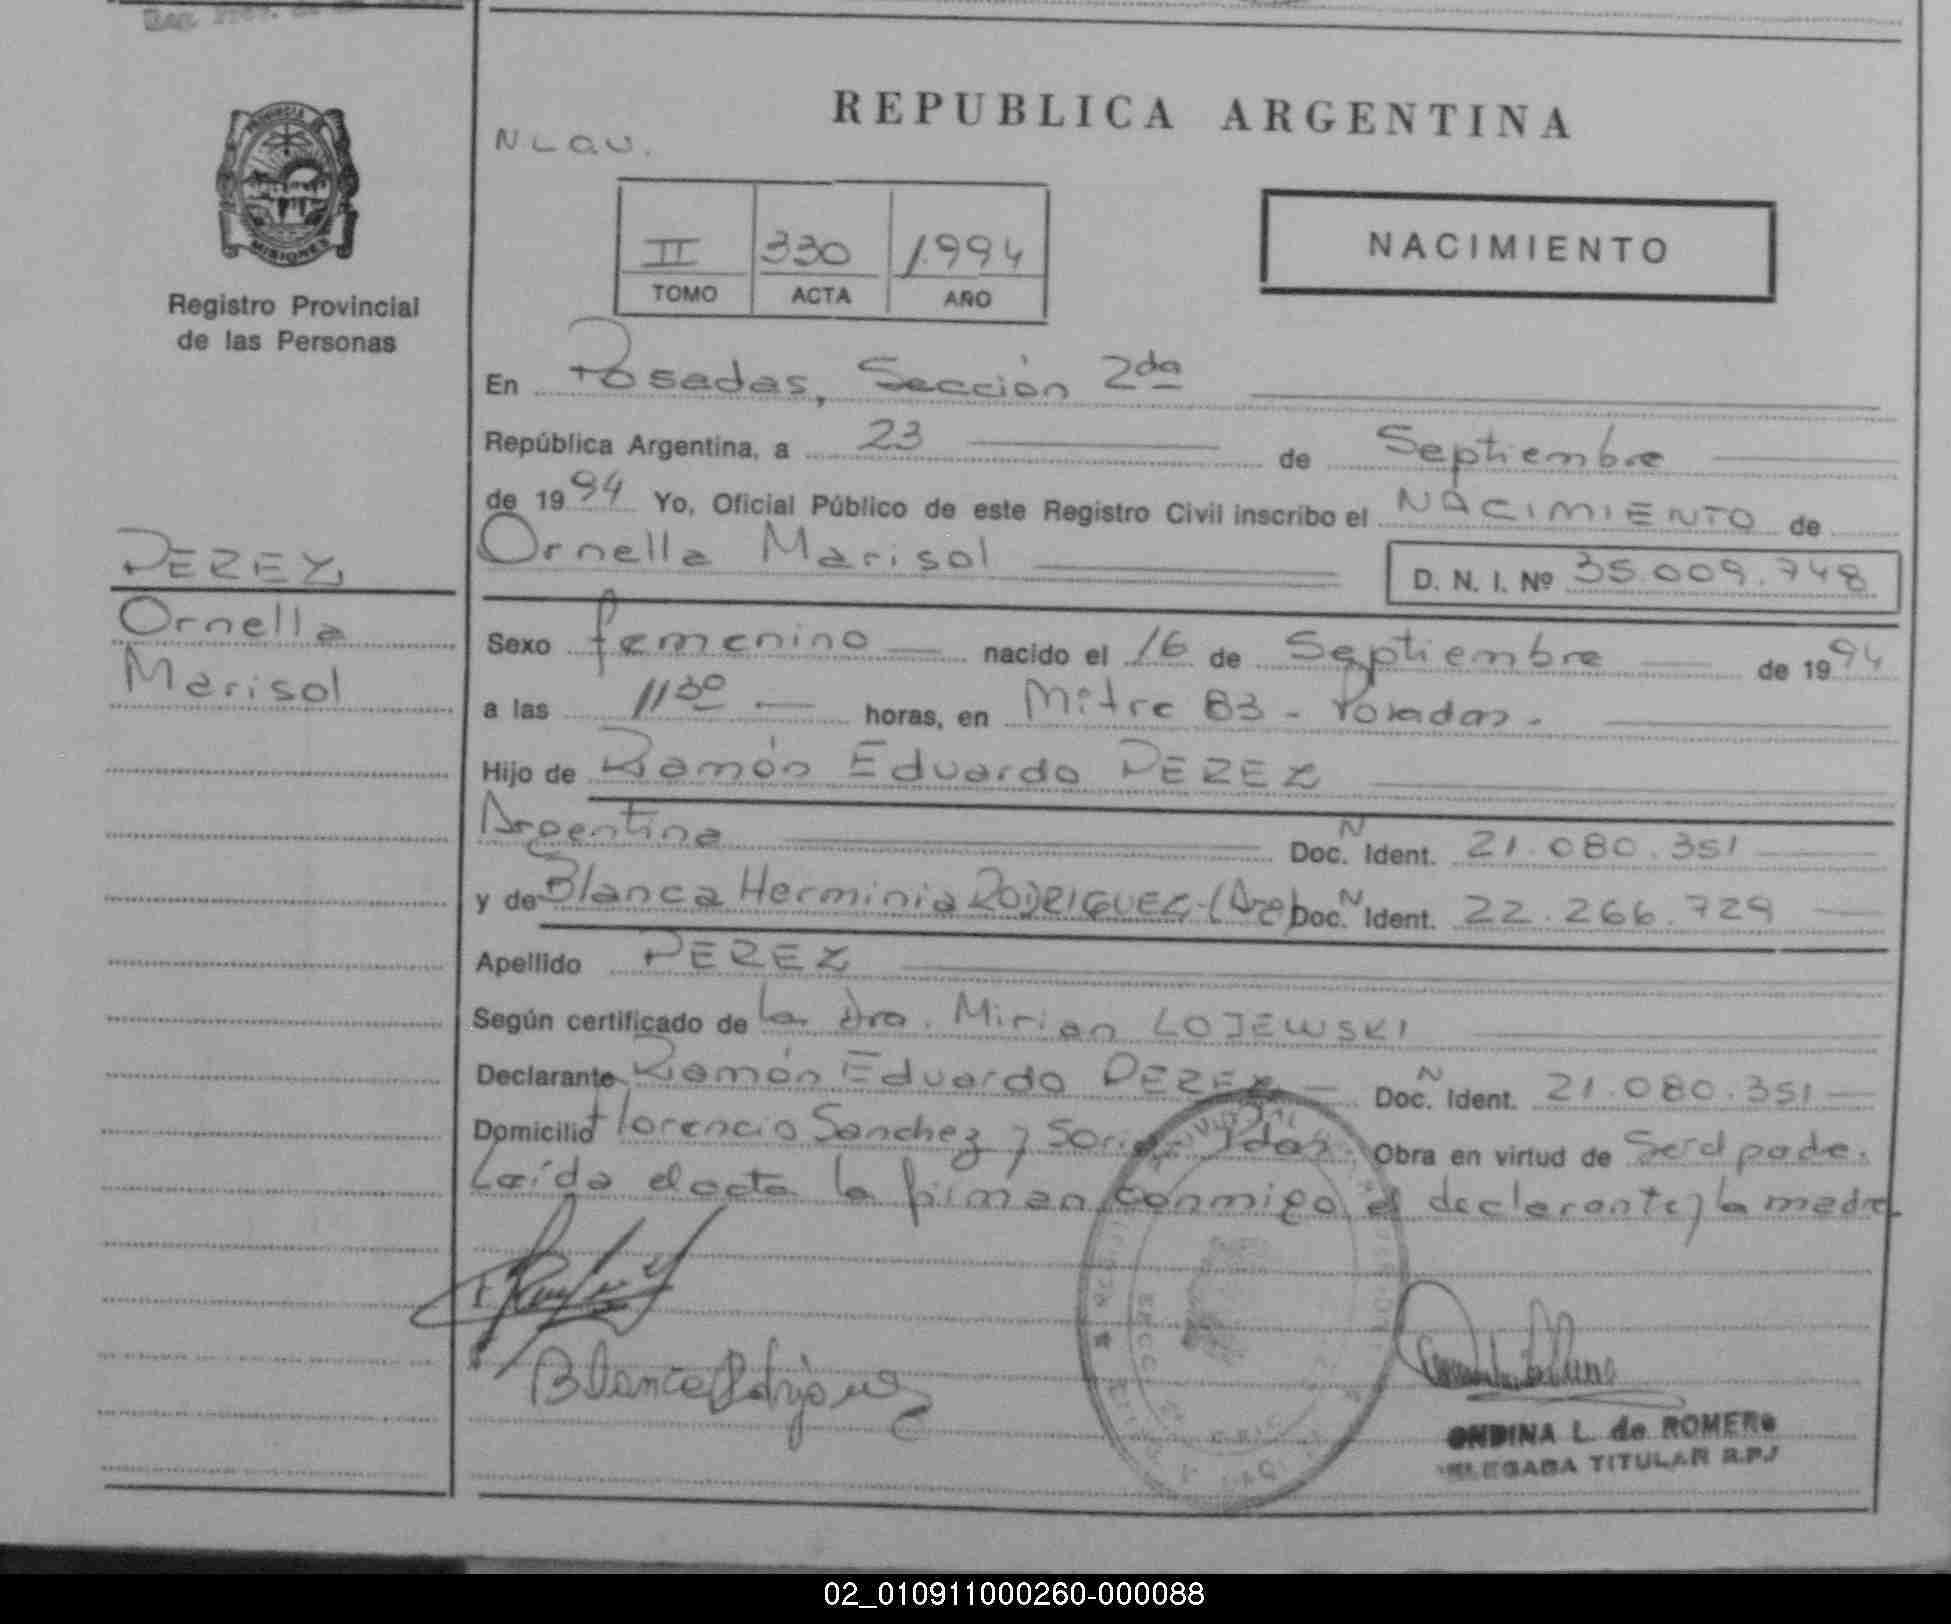 REPUBLICA ARGENTINA
PROVINCIA DE
MISIONES
Registro Provincial
de las Personas
II 330 1994
TOMO ACTA AÑO
NACIMIENTO
En Posadas, Sección 2da
República Argentina, a 23 de Septiembre
de 1994 Yo, Oficial Público de este Registro Civil inscribo el NACIMIENTO de
Ornella Marisol D. N. I. Nº 35.009.748
PEREZ
Ornella
Marisol
Sexo femenino nacido el 16 de Septiembre de 1994
a las 11 30 horas, en Mitre 83 - Posadas.
Hijo de Ramón Eduardo PEREZ
Argentina Doc. N Ident. 21.080.351
y de Blanca Herminia RODRIGUEZ - (Arg) Doc. N Ident. 22.266.729
Apellido PEREZ
Según certificado de la dra. Mirian LOJEWSKI
Declarante Ramón Eduardo PEREZ Doc. N Ident. 21.080.351
Domicilio Florencio Sanchez y Pdas. Obra en virtud de
Leída el acta la firman conmigo el declarante y la madre.
Blanca Rodriguez
ONDINA L. de ROMERO
DELEGADA TITULAR R.P.
02_010911000260-000088